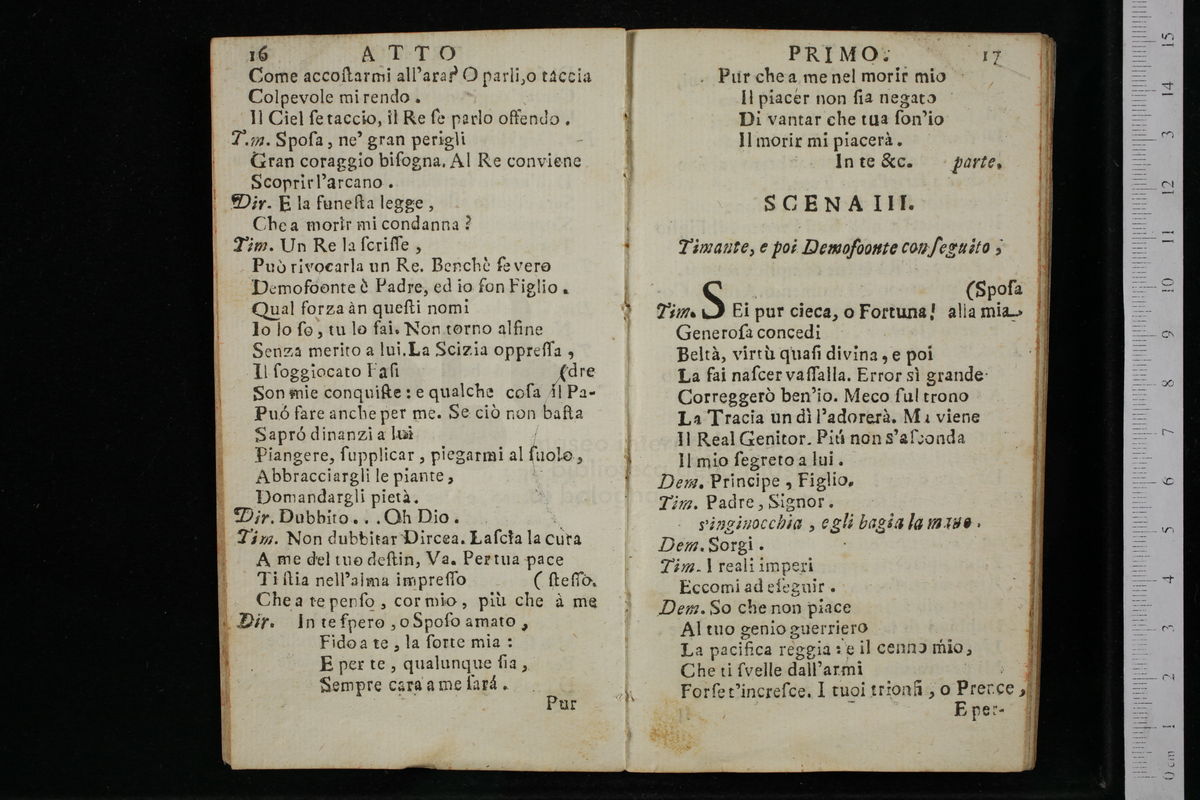 16 ATTO
Come accoſtarmi all'ara? O parli,o taccia
Colpevole mi rendo .
Il Ciel ſe taccio, il Re ſe parlo offendo .
Tim. Spoſa , ne' gran perigli
Gran coraggio biſogna. Al Re conviene
Scoprir l'arcano .
Dir. E la funeſta legge ,
Che a morìr mi condanna ?
Tim. Un Re la ſcriſſe ,
Può rivocarla un Re. Benchè ſevero
Demofoonte è Padre, ed io ſon Figlio .
Qual forza àn queſti nomi
Io lo ſo , tu lo ſai. Non torno alfine
Senza merito a lui. La Scizia oppreſſa ,
Il ſoggiocato Faſi (dre
Son mie conquiſte : e qualche coſa il Pa-
Puó fare anche per me. Se ciò non baſta
Sapró dinanzi a lui
Piangere, ſupplicar , piegarmi al ſuolo ,
Abbracciargli le piante ,
Domandargli pietà .
Dir. Dubbito . . . Oh Dio .
Tim. Non dubbitar Dircea. Laſcia la cura
A me del tuo deſtin, Va. Per tua pace
Ti ſtia nell'alma impreſſo ( ſteſſo.
Che a te penſo , cor mio , più che à me
Dir. In te ſpero , o Spoſo amato ,
Fido a te , la ſorte mia :
E per te , qualunque ſia ,
Sempre cara a me ſará .
Pur
PRIMO. 17
Pur che a me nel morir mio
Il piacer non ſia negato
Di vantar che tua ſon'io
Il morir mi piacerà .
In te &c. parte.
SCENA III.
Timante, e poi Demofoonte con ſeguito ;
(Spoſa
Tim. SEi pur cieca, o Fortuna! alla mia
Generoſa concedi
Beltà, virtù quaſi divina , e poi
La fai naſcer vaſſalla. Error sì grande
Correggerò ben'io. Meco ſul trono
La Tracia un dì l'adorerà. Ma viene
Il Real Genitor. Piú non s'aſconda
Il mio ſegreto a lui .
Dem. Principe , Figlio.
Tim. Padre , Signor.
s'inginocchia , e gli bagia la mano .
Dem. Sorgi .
Tim. I reali imperi
Eccomi ad eſeguir .
Dem. So che non piace
Al tuo genio guerriero
La pacifica reggia : e il cenno mio,
Che ti ſvelle dall'armi
Forſe t'increſce. I tuoi trionfi , o Prence ,
E per-